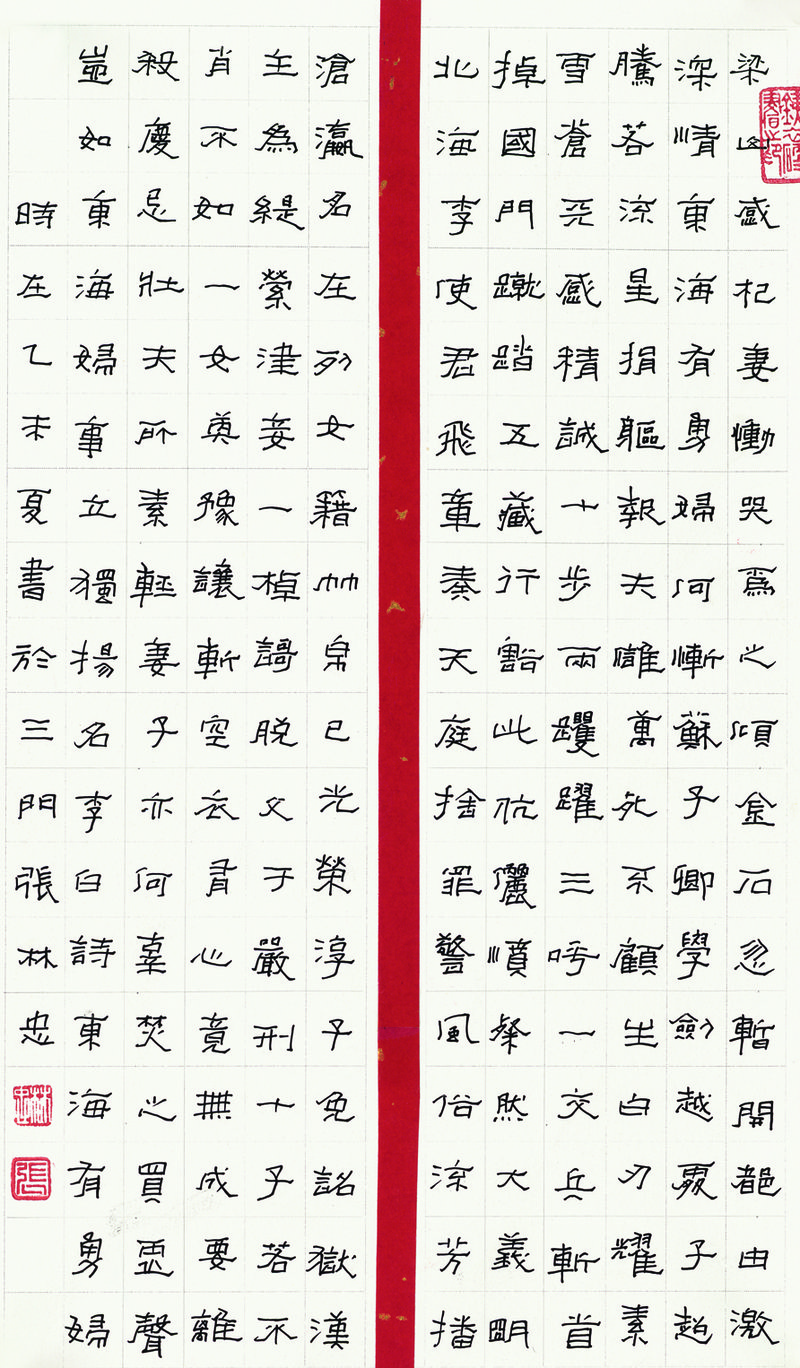 梁山感杞妻慟哭爲之傾金石忽暫開都由激
深情東海有勇婦何慚蘇子卿學劍越處子超
騰若流星捐軀報夫讎萬死不顧生白刃耀素
雪蒼天感精誠十步兩躩躍三呼一交兵斬首
掉國門蹴踏五藏行豁此伉儷憤粲然大義明
北海李使君飛章奏天庭捨罪警風俗流芳播
滄瀛名在列女籍竹帛已光榮淳于免詔獄漢
主為緹縈津妾一棹謌脱父于嚴刑十子若不
肖不如一女英豫讓斬空衣有心竟無成要離
殺慶忌壯夫所素輕妻子亦何辜焚之買虛聲
豈如東海婦事立獨揚名李白詩東海有勇婦
時在乙未夏書於三門張林忠
林忠
張